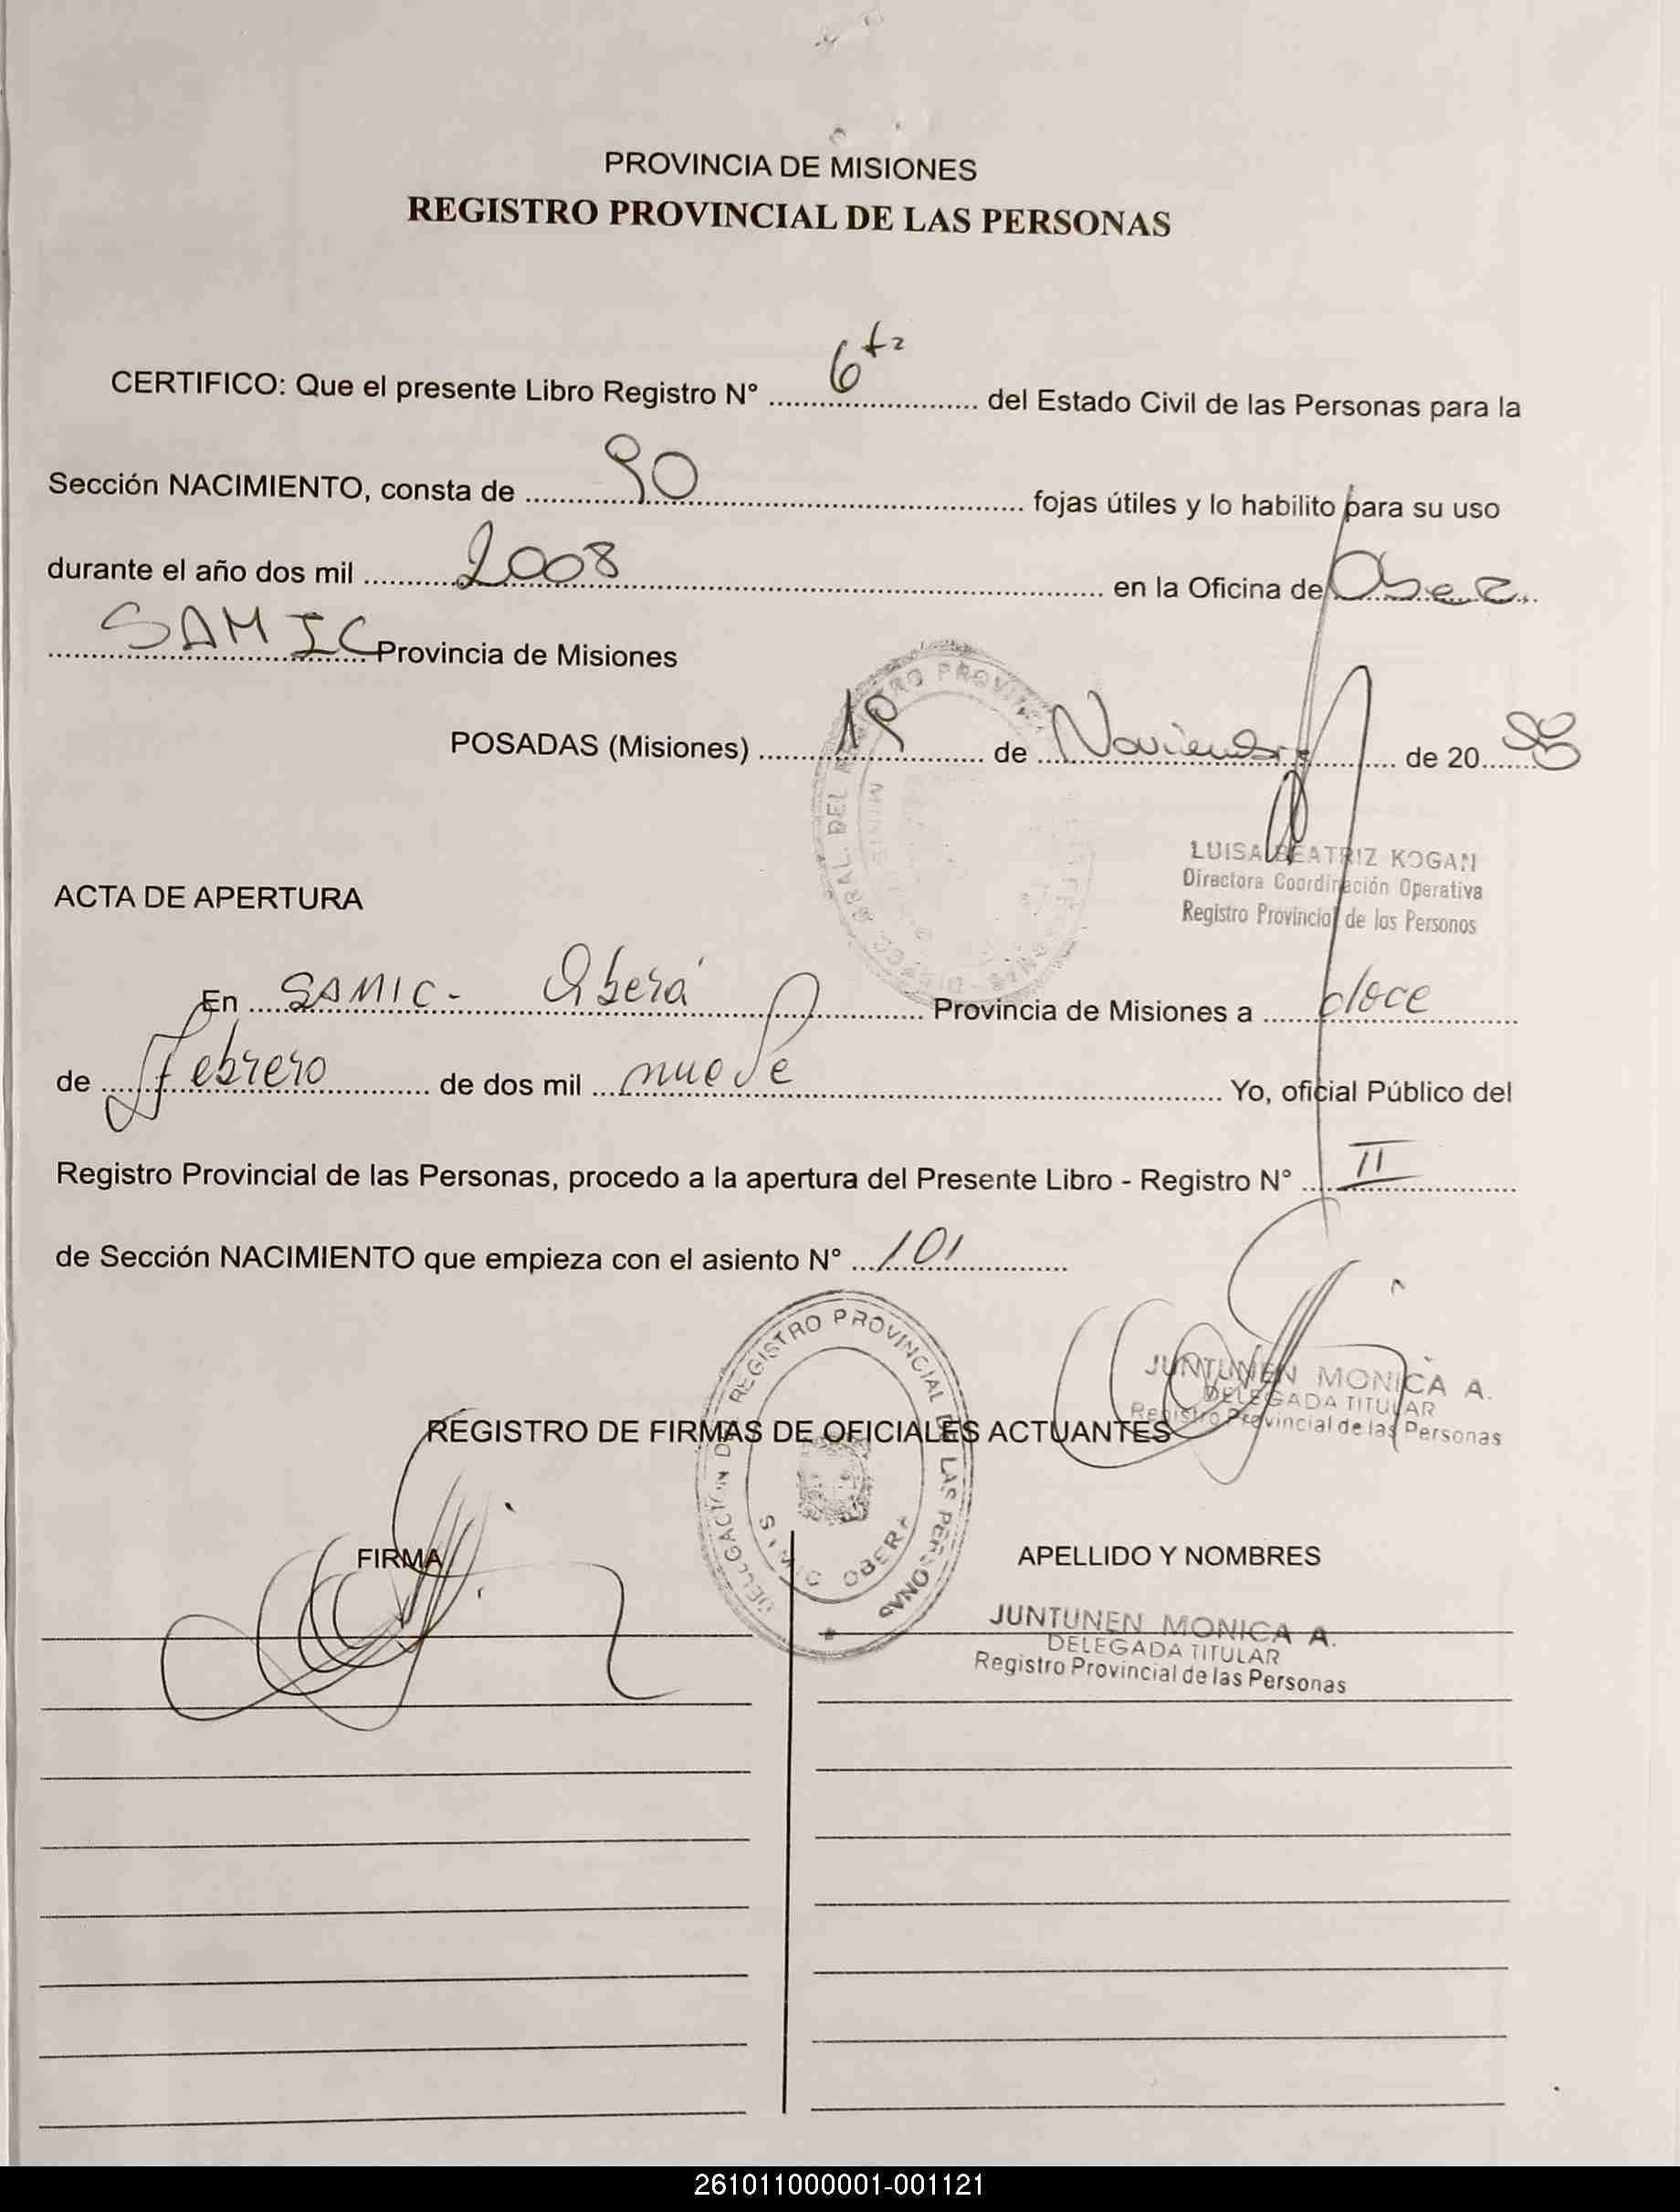 PROVINCIA DE MISIONES
REGISTRO PROVINCIAL DE LAS PERSONAS
CERTIFICO: Que el presente Libro Registro N° 6ta del Estado Civil de las Personas para la
Sección NACIMIENTO, consta de 90 fojas útiles y lo habilito para su uso
durante el año dos mil 2008 en la Oficina de
SAMIC Provincia de Misiones
POSADAS (Misiones) de Noviembre de 20
LUISA BEATRIZ KOGAN
Directora Coordinación Operativa
Registro Provincial de las Personas
ACTA DE APERTURA
En SAMIC - Oberá Provincia de Misiones a doce
de Febrero de dos mil nueve Yo, oficial Público del
Registro Provincial de las Personas, procedo a la apertura del Presente Libro - Registro N° II
de Sección NACIMIENTO que empieza con el asiento N° 101
DELEGACION DEL REGISTRO PROVINCIAL DE LAS PERSONAS
SAMIC OBERA
JUNTUNEN MONICA A.
DELEGADA TITULAR
Registro Provincial de las Personas
REGISTRO DE FIRMAS DE OFICIALES ACTUANTES
FIRMA APELLIDO Y NOMBRES
JUNTUNEN MONICA A.
DELEGADA TITULAR
Registro Provincial de las Personas
261011000001-001121